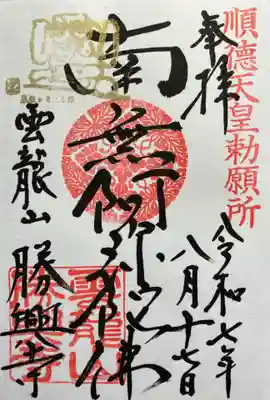 順徳天皇勅願所
奉拝
令和七年
八月十七日
南無阿弥陀佛
雲龍山 勝興寺
雲龍山
勝興寺